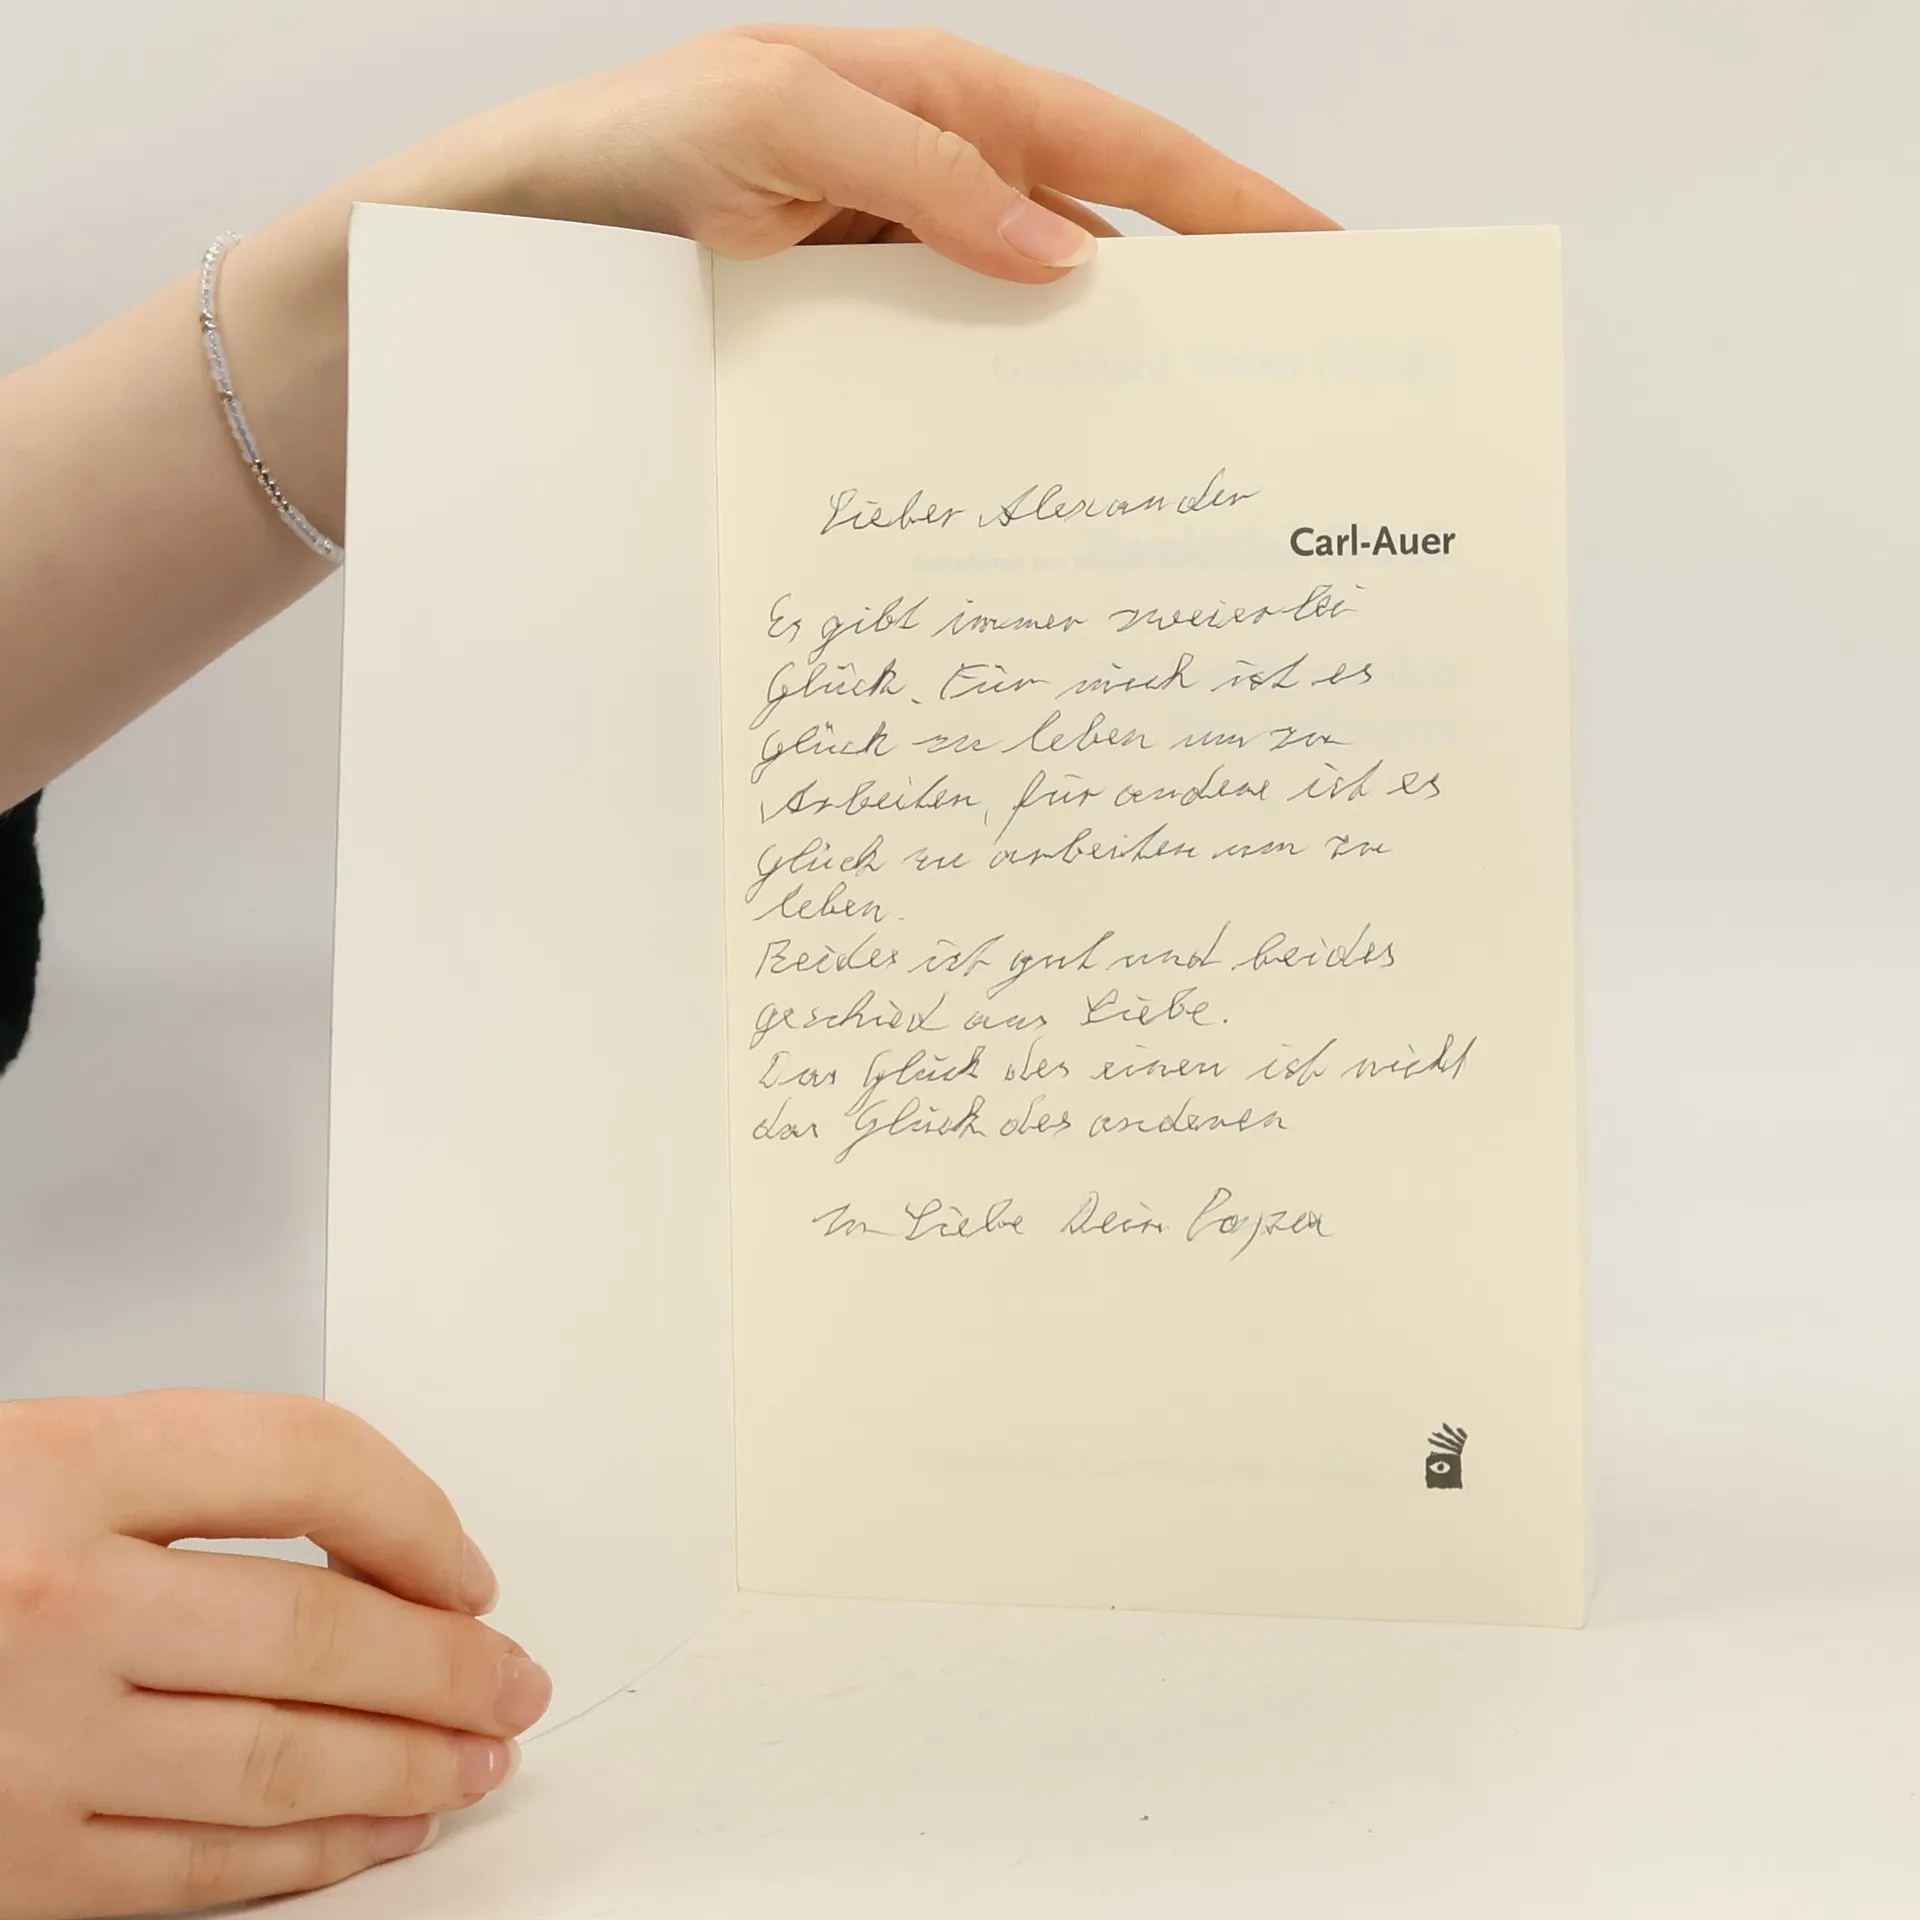 Lieber Alexander
Carl-Auer
Es gibt immer zweierlei
Glück. Für mich ist es
Glück zu leben um zu
Arbeiten, für andere ist es
Glück zu arbeiten um zu
leben.
Beides ist gut und beides
geschied aus Liebe.
Das Glück des einen ist nicht
das Glück des anderen
In Liebe Dein